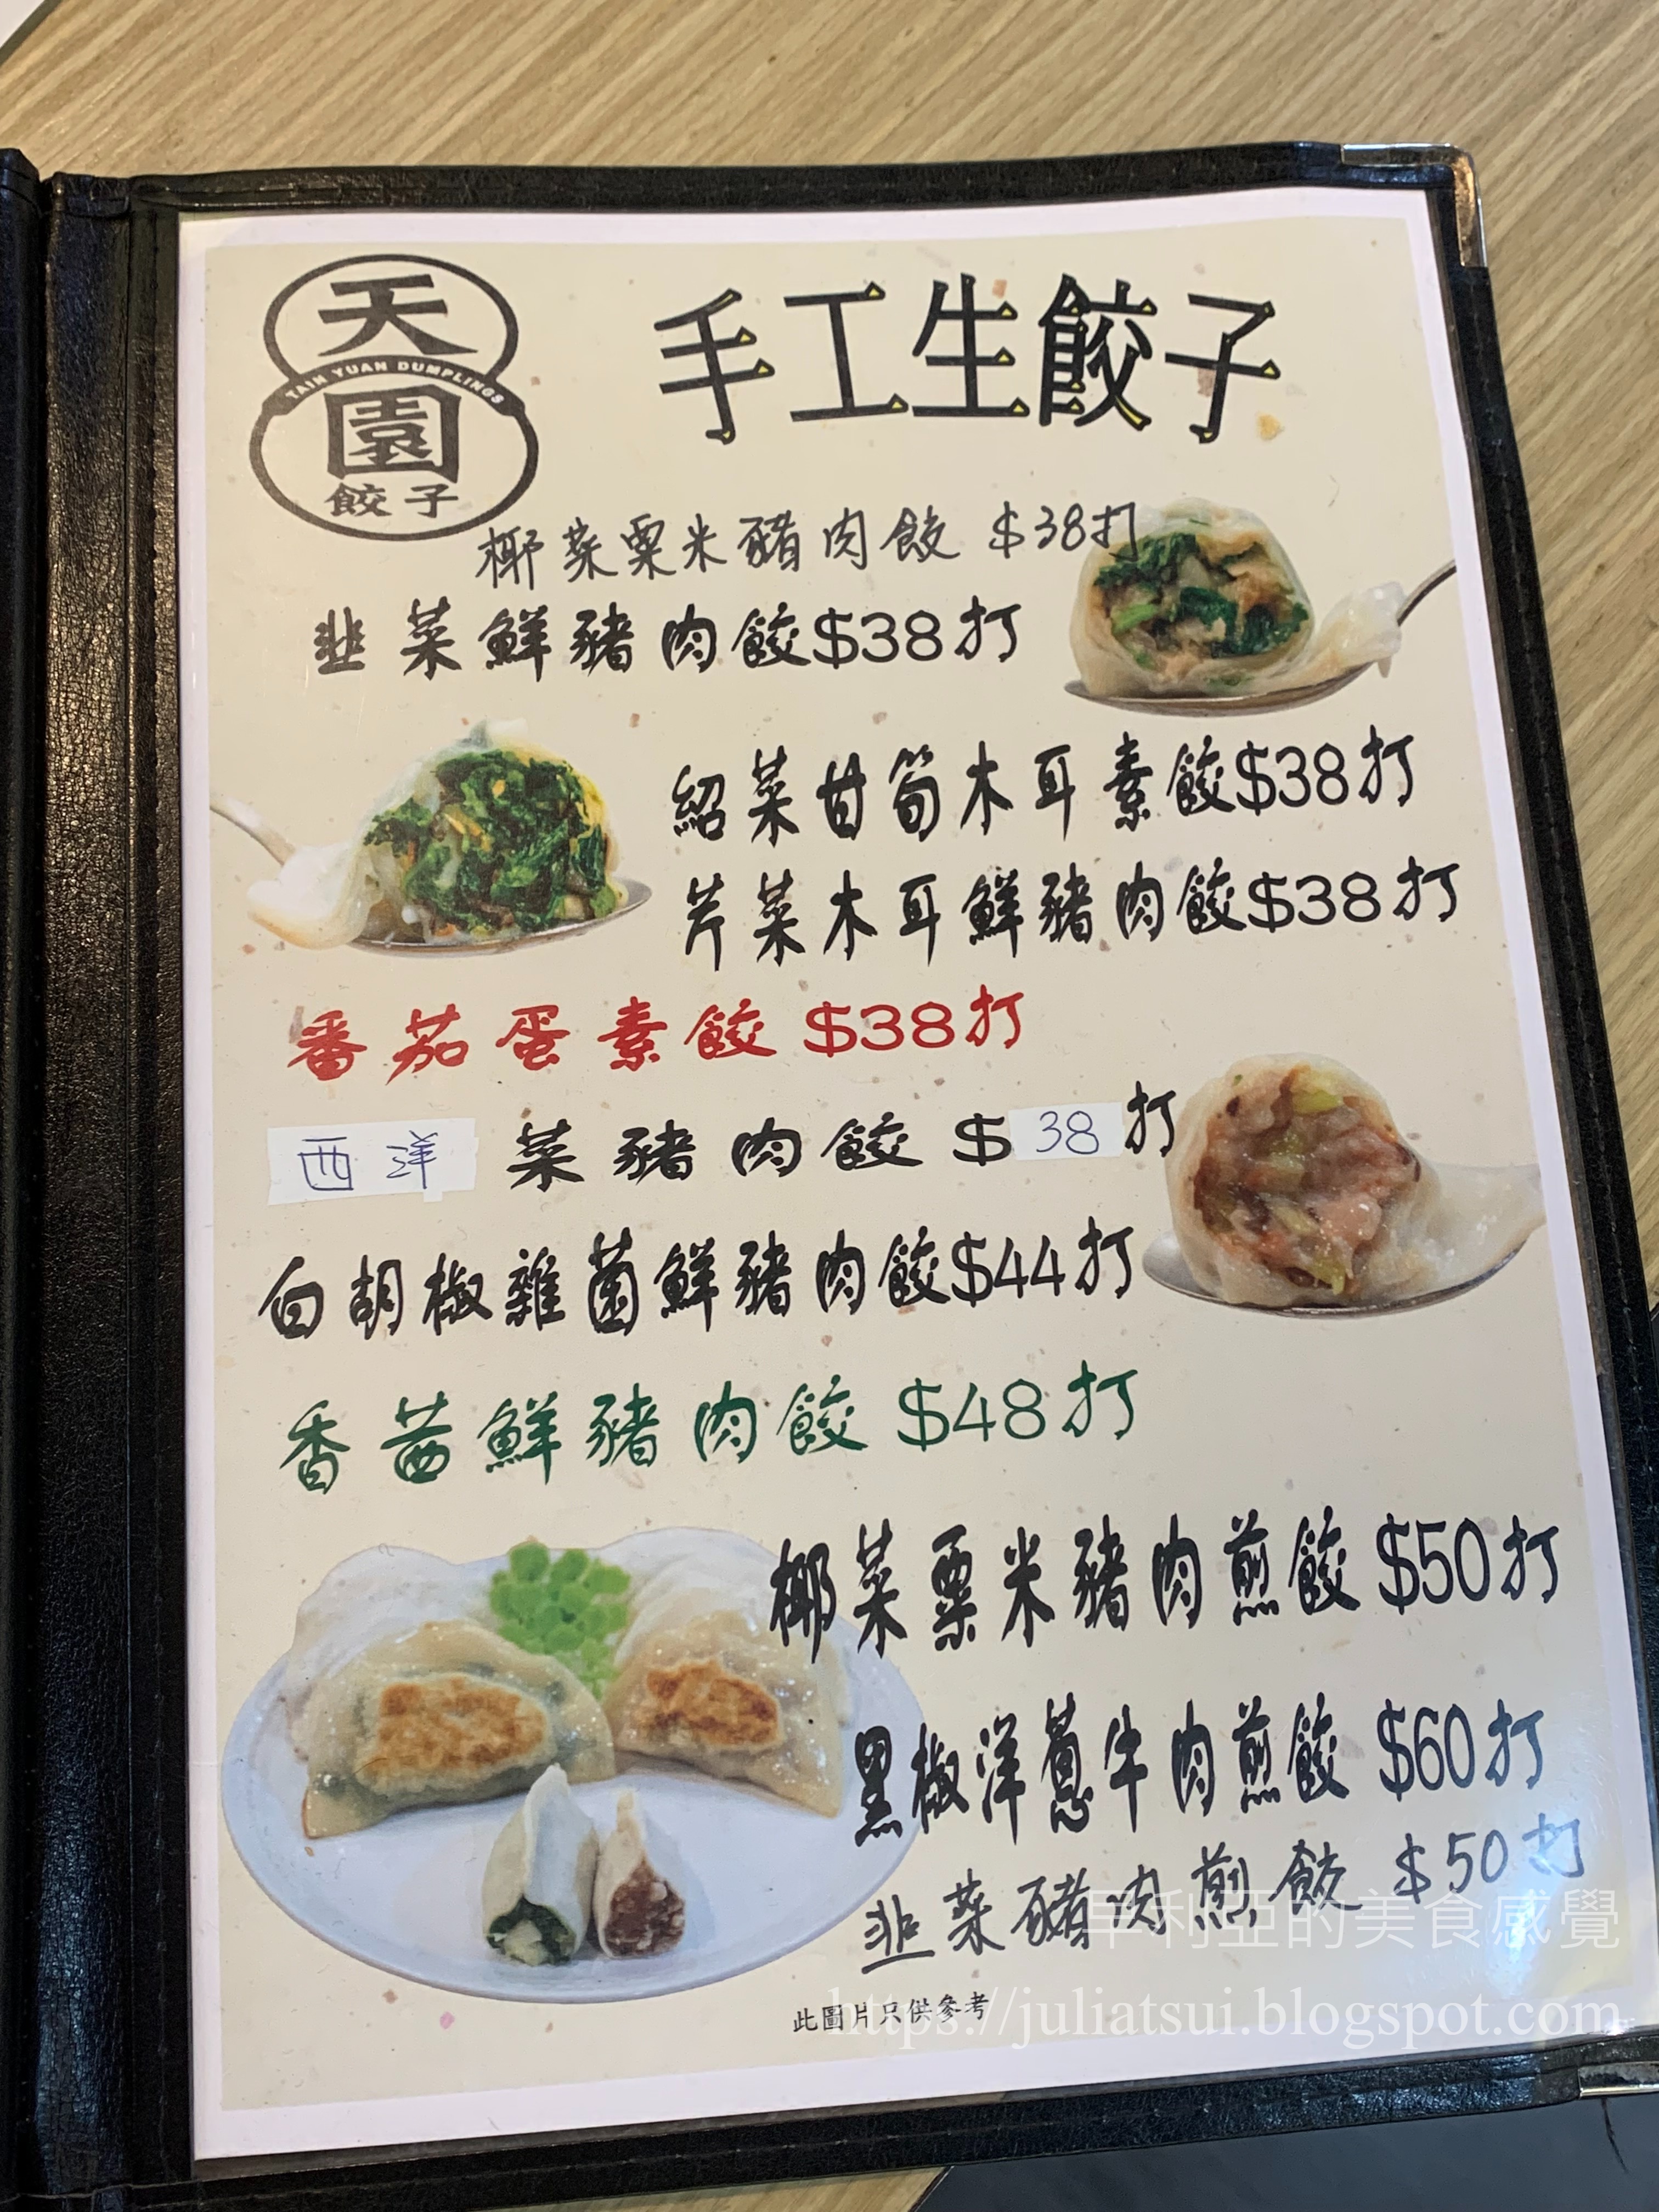 天
TAIN YUAN DUMPLINGS
園
餃子
手工生餃子
椰菜粟米豬肉餃 $38打
韮菜鮮豬肉餃$38打
紹菜甘筍木耳素餃$38打
芹菜木耳鮮豬肉餃$38打
番茄蛋素餃 $38打
西洋菜豬肉餃 $38打
白胡椒雜菌鮮豬肉餃$44打
香茜鮮豬肉餃 $48打
椰菜粟米豬肉煎餃 $50打
黑椒洋蔥牛肉煎餃 $60打
韮菜豬肉煎餃 $50打
早利亞的美食感覺
此圖片只供參考
https://juliatsui.blogspot.com